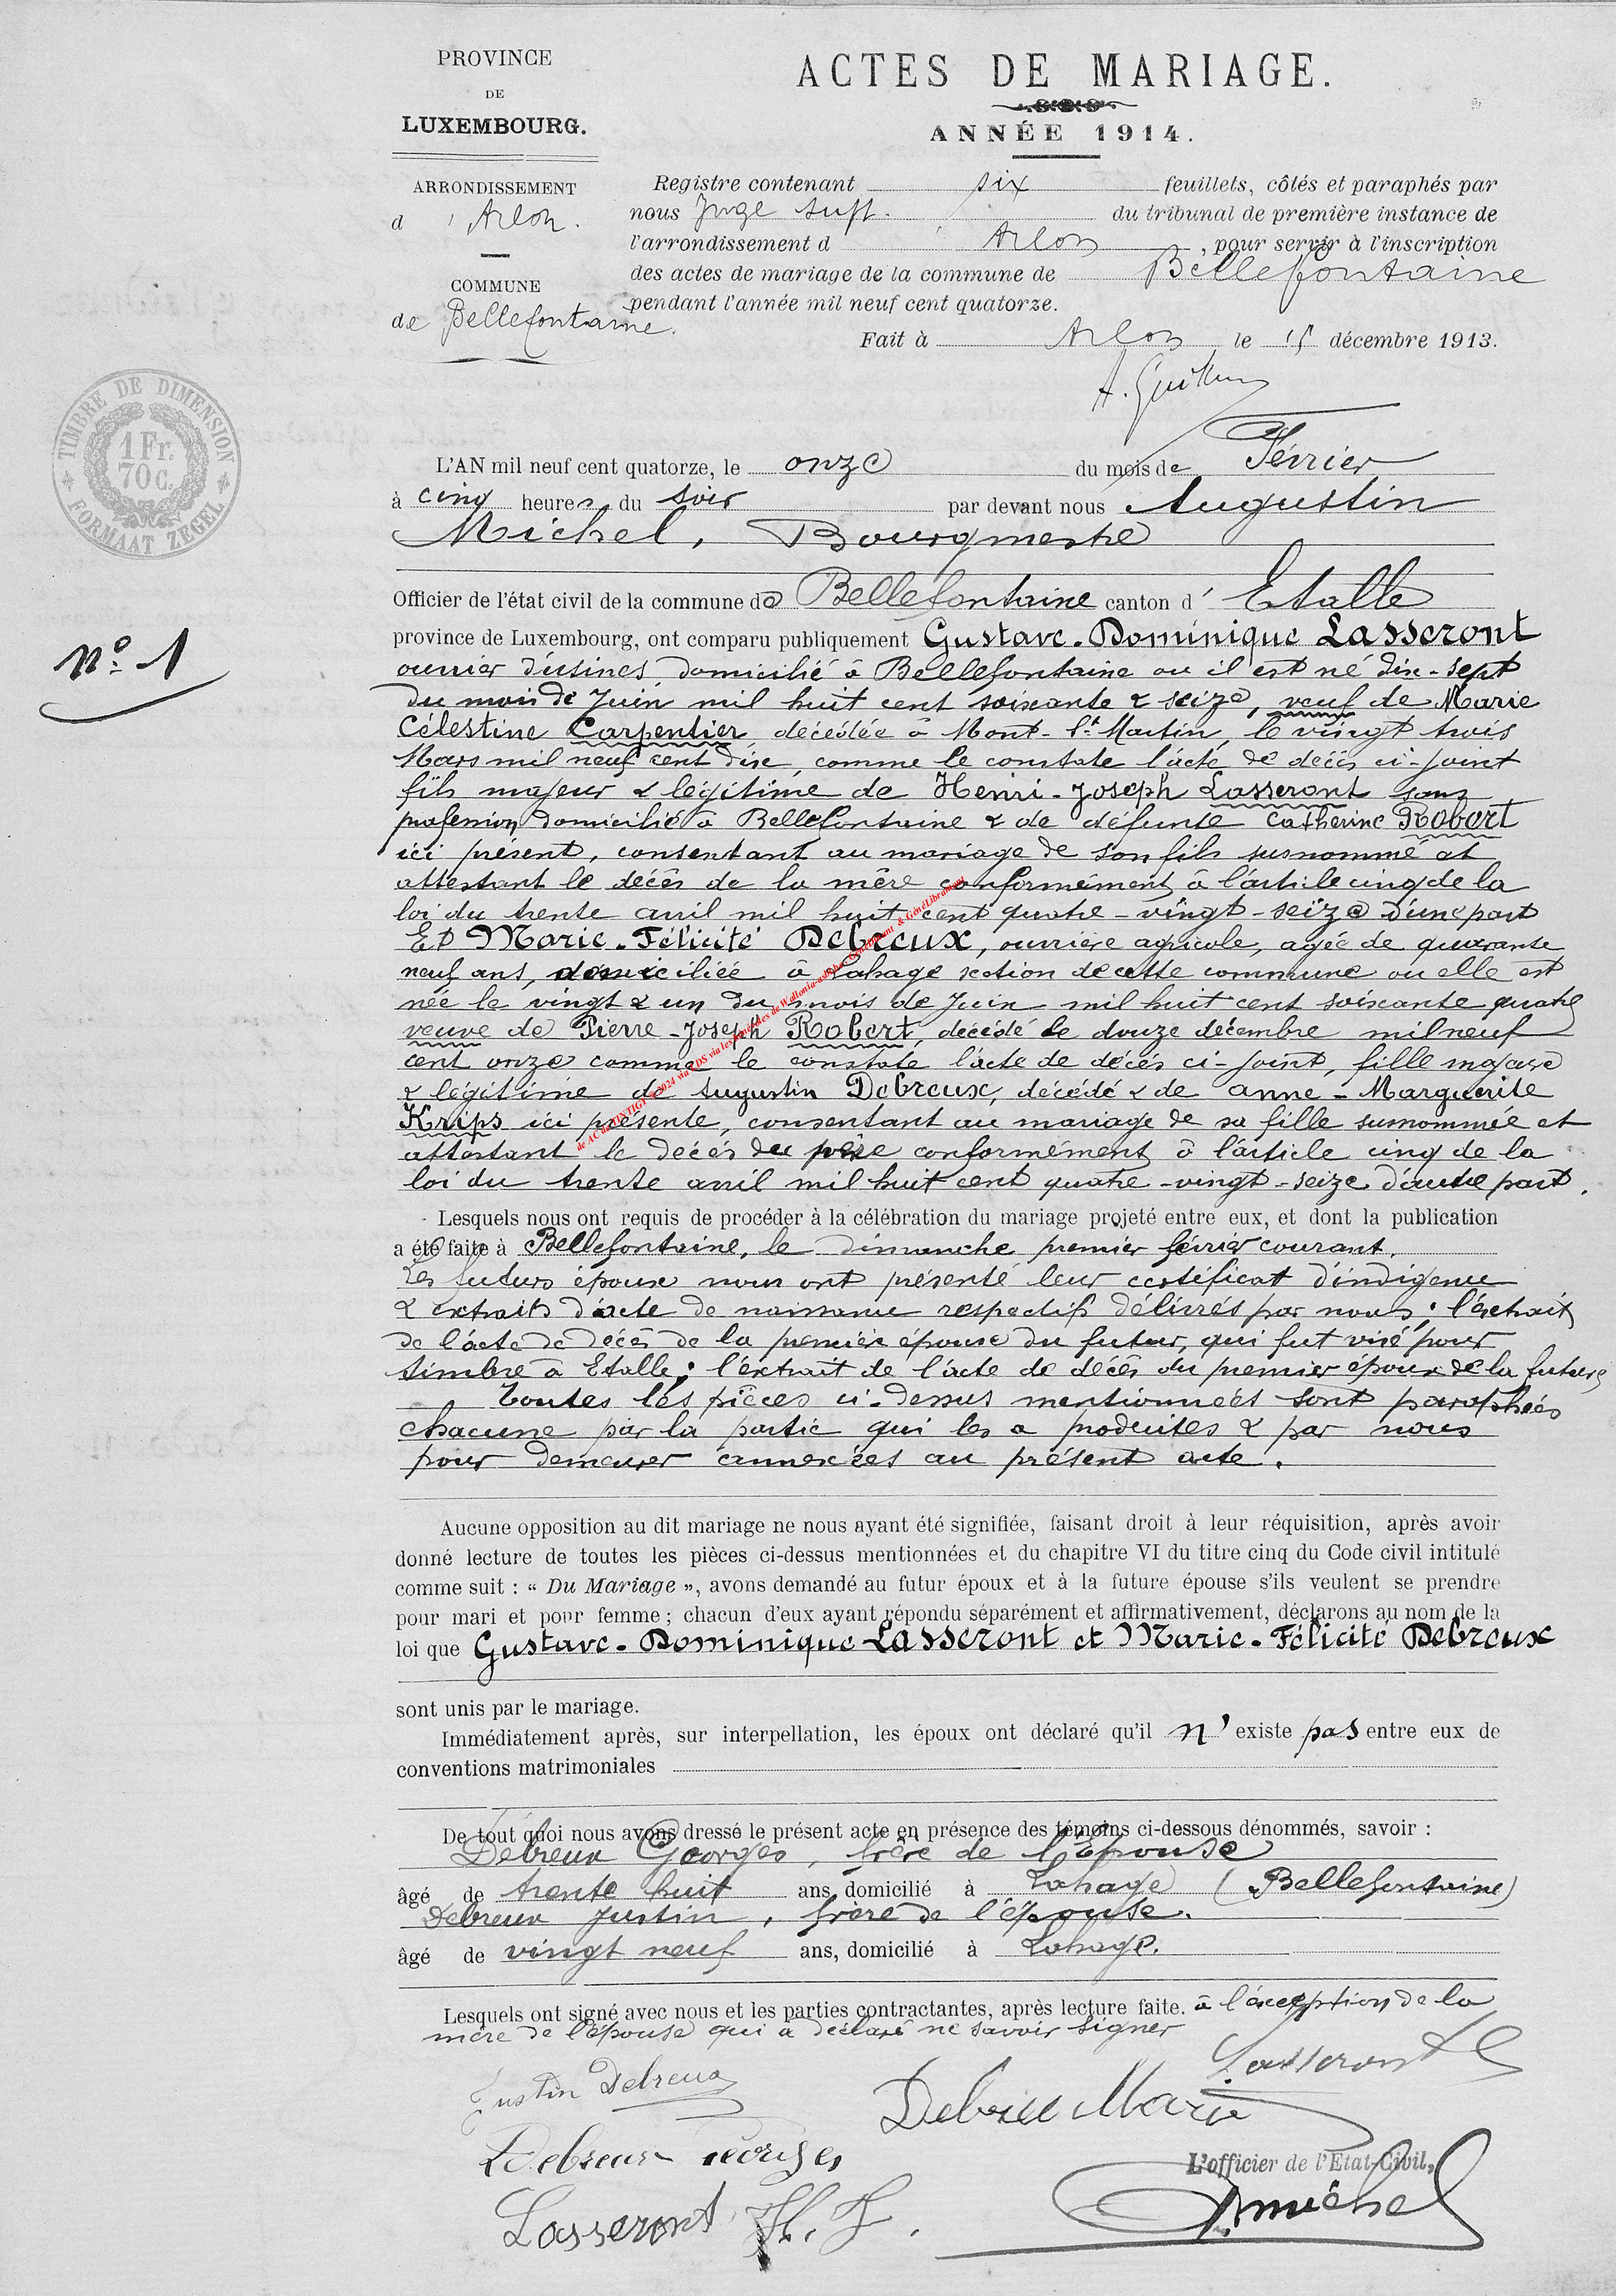 PROVINCE
DE
LUXEMBOURG.
ARRONDISSEMENT
d'Arlon.
COMMUNE
de Bellefontaine.
ACTES DE MARIAGE.
ANNÉE 1914.
Registre contenant six feuillets, côtés et paraphés par
nous Juge supt. du tribunal de première instance de
l'arrondissement d'Arlon, pour servir à l'inscription
des actes de mariage de la commune de Bellefontaine
pendant l'année mil neuf cent quatorze.
Fait à Arlon le 15 décembre 1913.
TIMBRE DE DIMENSION
1 Fr.
70 C.
FORMAAT ZEGEL
L'AN mil neuf cent quatorze, le onze du mois de Février
à cinq heures du soir par devant nous Augustin
Michel, Bourgmestre
Officier de l'état civil de la commune de Bellefontaine canton d'Etalle
N° 1
province de Luxembourg, ont comparu publiquement Gustave-Dominique Lasseront
ouvrier d'usines, domicilié à Bellefontaine ou il est né dix-sept
du mois de Juin mil huit cent soixante & seize, veuf de Marie
Célestine Carpentier, décédée à Mont-St Martin, le vingt trois
Mars mil neuf cent dix, comme le constate l'acte de décès ci-joint
fils majeur & légitime de Henri-Joseph Lasseront sans
profession domicilié à Bellefontaine & de défunte Catherine Robert
ici présent, consentant au mariage de son fils susnommé et
attestant le décès de la mère conformément à l'article cinq de la
loi du trente avril mil huit cent quatre-vingt-seize d'une part
Et Marie-Félicité Debreux, ouvrière agricole, agée de quarante
neuf ans, domiciliée à Lahage section de cette commune ou elle est
née le vingt & un du mois de Juin mil huit cent soixante quatre
veuve de Pierre-Joseph Robert, décédé le douze décembre mil neuf
cent onze comme le constate l'acte de décès ci-joint, fille majeure
& légitime de Augustin Debreux, décédé & de Anne-Marguerite
Krips ici présente, consentant au mariage de sa fille susnommée et
attestant le décès du père conformément à l'article cinq de la
loi du trente avril mil huit cent quatre-vingt-seize d'autre part.
Lesquels nous ont requis de procéder à la célébration du mariage projeté entre eux, et dont la publication
a été faite à Bellefontaine, le dimanche premier février courant.
Les futurs époux nous ont présenté leur certificat d'indigence
& extraits d'acte de naissance respectifs délivrés par nous; l'extrait
de l'acte de décès de la première épouse du futur, qui fut visé pour
timbre à Etalle; l'extrait de l'acte de décès du premier époux de la future
Toutes les pièces ci-dessus mentionnées sont paraphées
chacune par la partie qui les a produites & par nous
pour demeurer annexées au présent acte.
Aucune opposition au dit mariage ne nous ayant été signifiée, faisant droit à leur réquisition, après avoir
donné lecture de toutes les pièces ci-dessus mentionnées et du chapitre VI du titre cinq du Code civil intitulé
comme suit : « Du Mariage », avons demandé au futur époux et à la future épouse s'ils veulent se prendre
pour mari et pour femme ; chacun d'eux ayant répondu séparément et affirmativement, déclarons au nom de la
loi que Gustave-Dominique Lasseront et Marie-Félicité Debreux
sont unis par le mariage.
Immédiatement après, sur interpellation, les époux ont déclaré qu'il n'existe pas entre eux de
conventions matrimoniales
De tout quoi nous avons dressé le présent acte en présence des témoins ci-dessous dénommés, savoir :
Debreux Georges, frère de l'Epouse
âgé de trente huit ans, domicilié à Lahage (Bellefontaine)
Debreux Justin, frère de l'épouse.
âgé de vingt neuf ans, domicilié à Lahage.
Lesquels ont signé avec nous et les parties contractantes, après lecture faite. à l'exception de la
mère de l'épouse qui a déclaré ne savoir signer
Lasseront G
Justin Debreux
Debreu Marie
Debreux Georges
L'officier de l'Etat-Civil,
Lasseront H. J.
A Michel